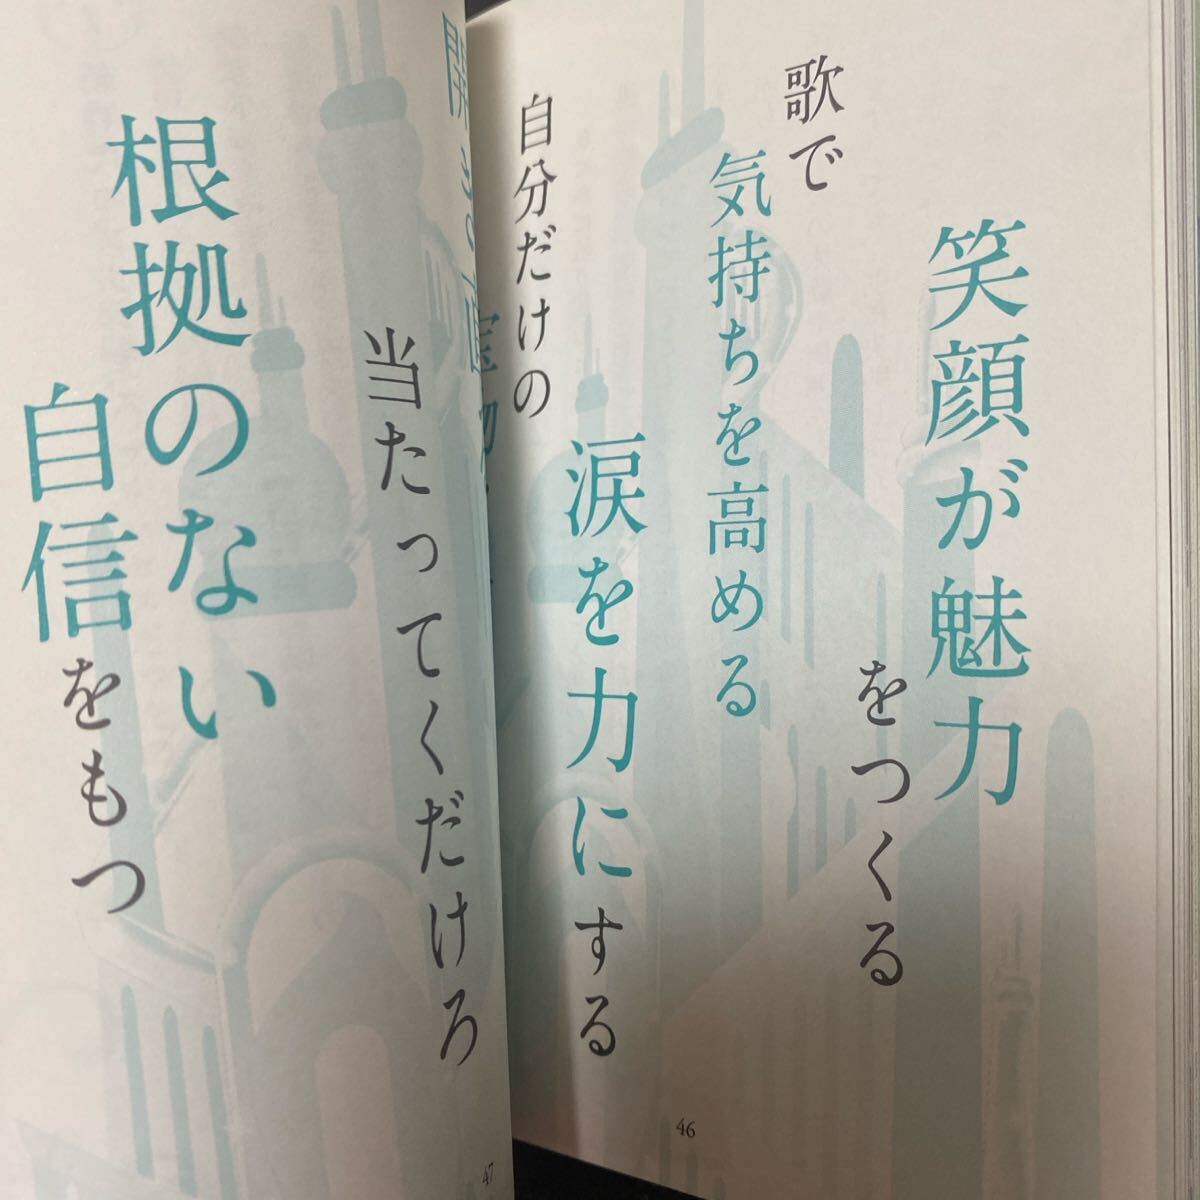 笑顔が魅力
をつくる
歌で
気持ちを高める
涙を力にする
自分だけの
当たってくだけろ
根拠のない
自信をもつ
46
47